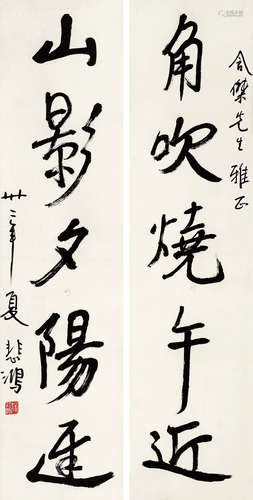 角吹燒午近
山影夕陽遲
先生雅正
卅二年夏 悲鴻